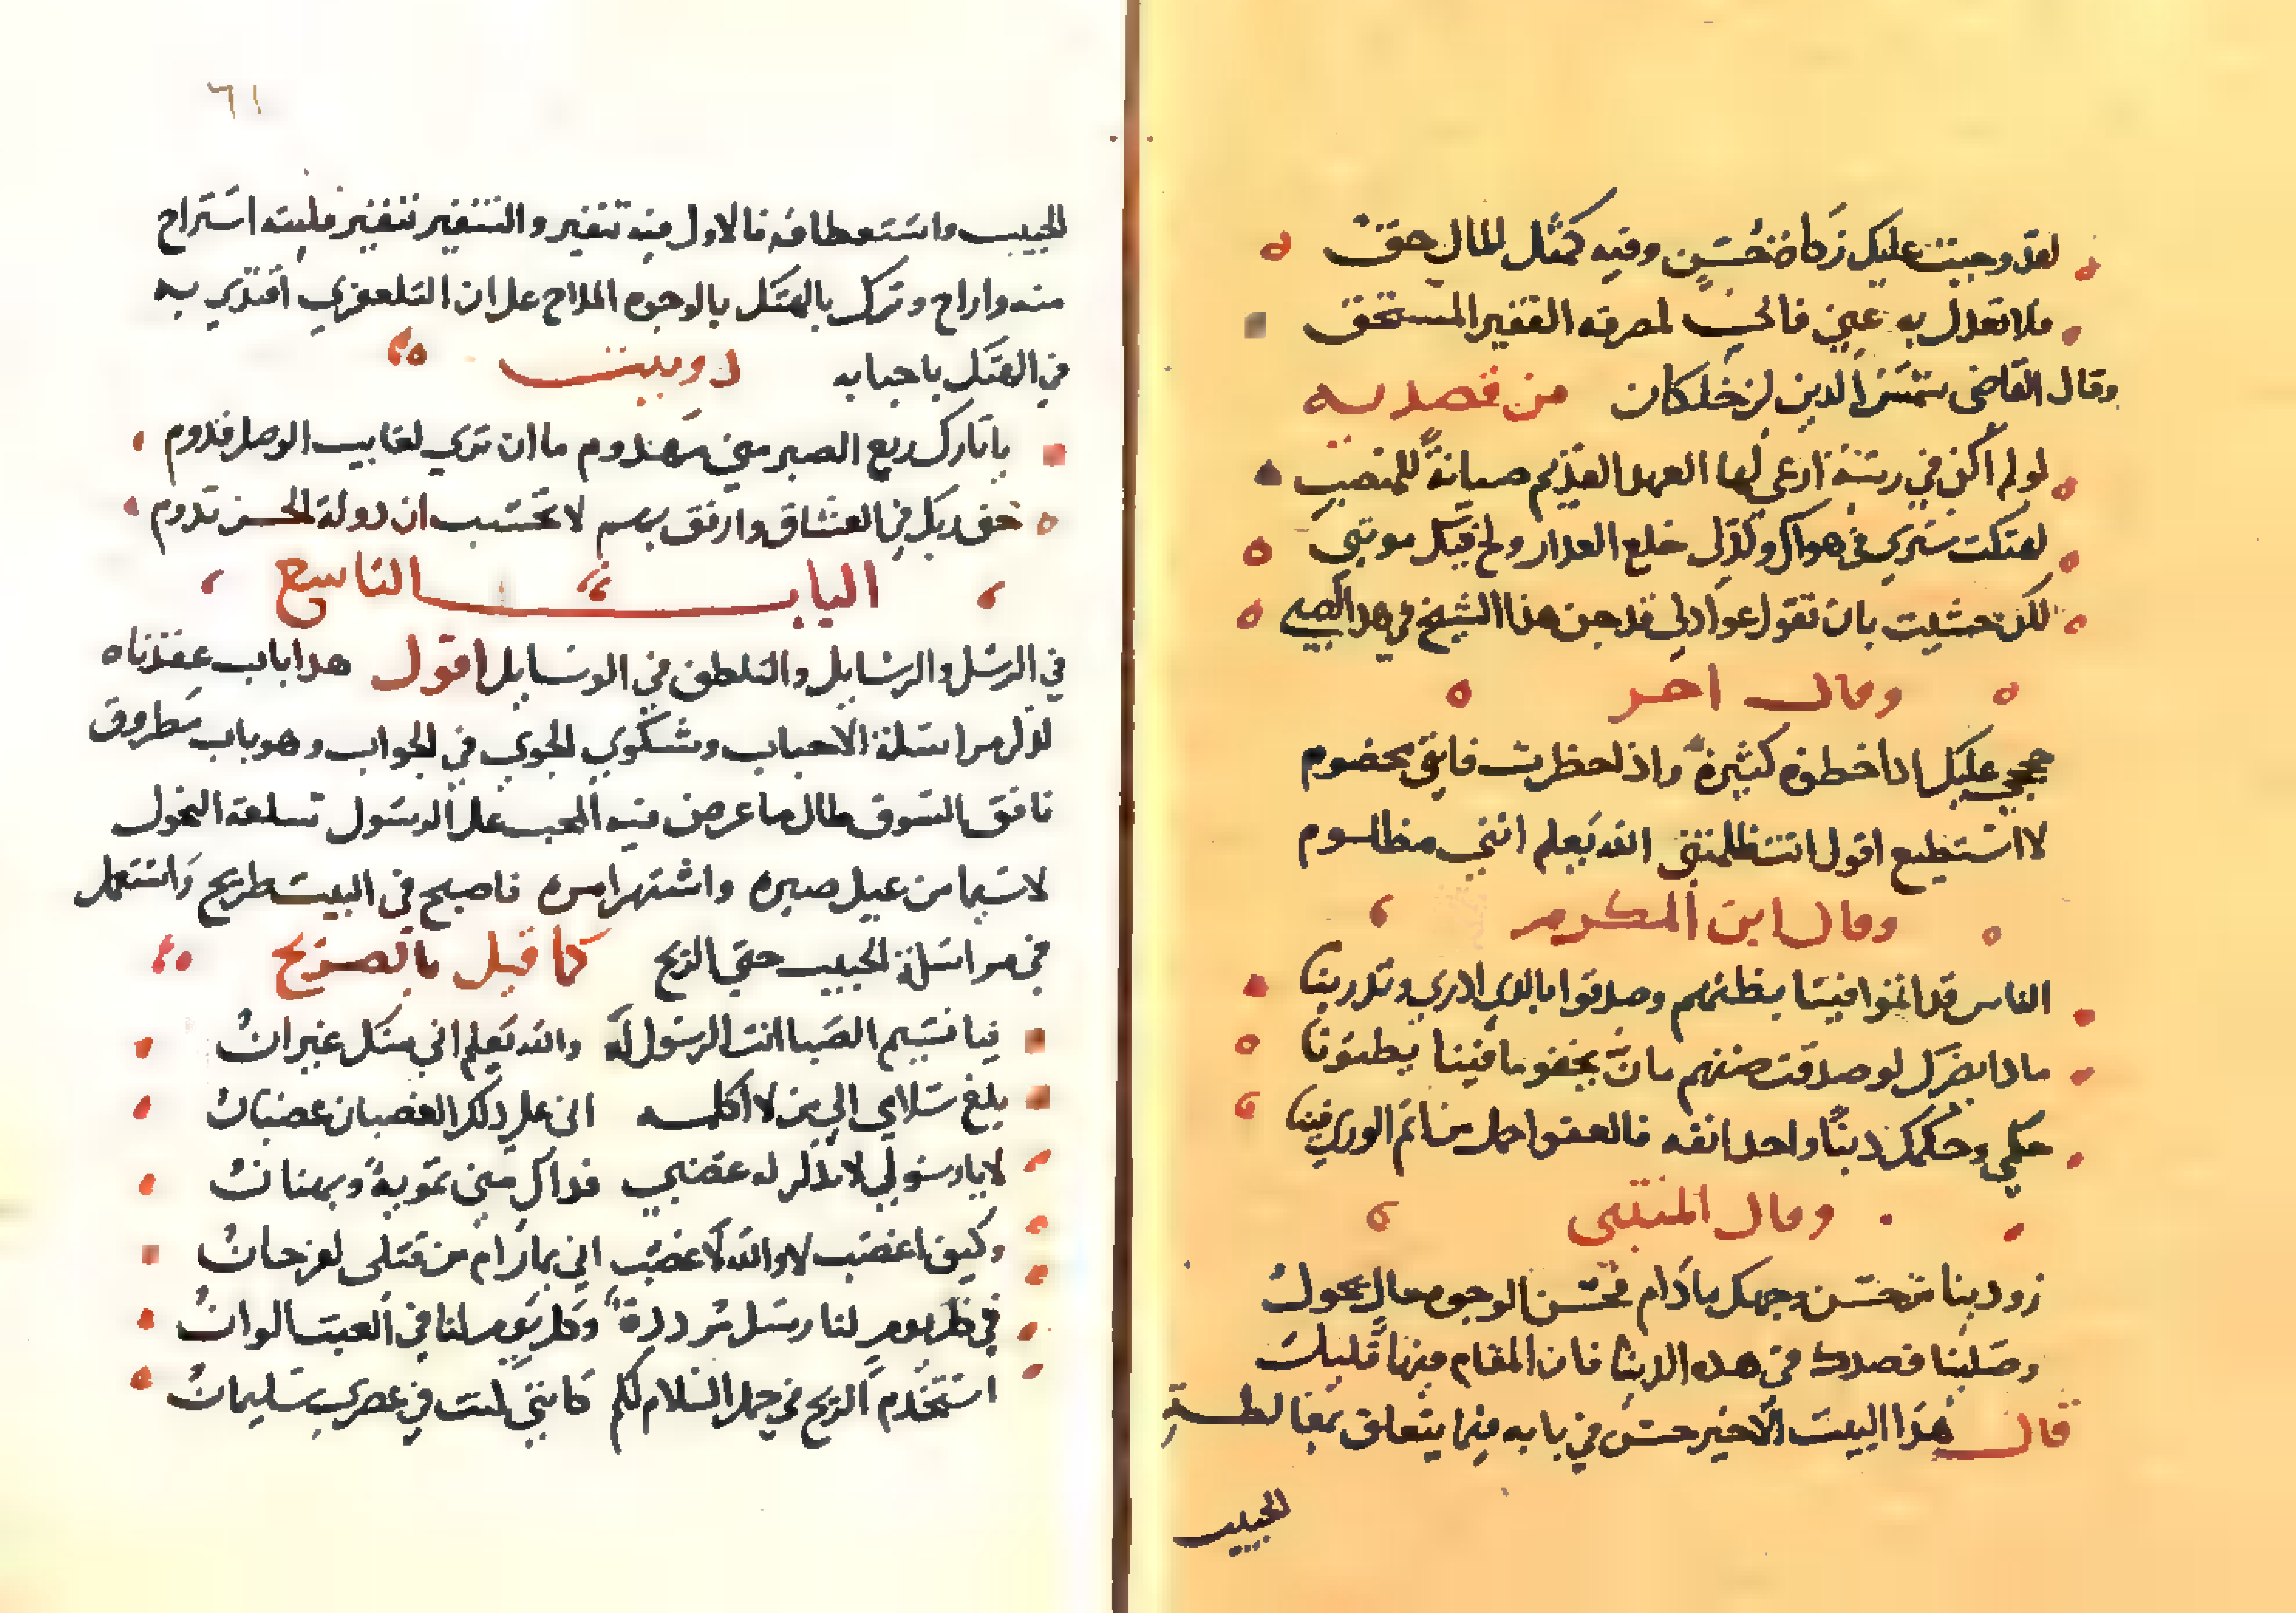 لقد وجبت عليك زكاة حسن وفيه كمثل المال حق
فلا تعدل به عني فاني لمصرفه الفقير المستحق
وقال القاضي شمس الدين بن خلكان من قصديه
لو لم اكن في رتبة ارعي لها العهد القديم صيانة للمنصب
لهتكت ستري في هواك ولذلي خلع العدار ولج فيك مونبي
لكن خشيت بان تقول عوادلي قد جن هذا الشيخ في هدا الصبي
وقال اخر
حججي عليك ادا خطوة كثيرة واذا حظرت فانني محضوم
لا استطيع اقول انت ظلمتني الله يعلم انني مظلوم
وقال ابن المكرم
الناس قد اثموا فينا بظنهم وصدقوا بالدي ادري وتدرينا
مادا يضرك لو صدقت ضنهم بان يحقق ما فينا يظنونا
حملي وحملك دبنا واحدا ثقه فالعفو احمل من اثم الوري فينا
وقال المتنبي
زودينا من حسن وجهك ما دام فحسن الوجوه حال يحول
وصلينا نصلك في هده الدنيا فان المقام فيها قليل
قال هذا البيت الاخير حسن في بابه فيما يتعلق بمغالطة
الحبيب
٦١
الحبيب واستعطافه فالاول فيه تنفير والتنفير تنفير فليته استراح
منه واراح وترك بالهتك بالوجوه الملاح على ان التلعفري اقتدي به
في القتل باحبابه دوبيت
يا تارك ربع الصبر مني مهدوم ما ان تري لغايب الوصل قدوم
خف ربك في العشاق وارفق بهم لا تحسب ان دولة الحسن تدوم
الباب التاسع
في الرسل والرسايل والتلطف في الوسايل اقول هدا باب عقدناه
لذكر مراسلة الاحباب وشكوي الجوي في الجواب وهو باب مطروق
نافق السوق طال ما عرض فيه المحب على الرسول سلعة النحول
لا سيما من عيل صبره واشتهر امره فاصبح في البيت طريح واستعمل
في مراسلة الحبيب حتي الريح كما قيل بالصريح
فيا نسيم الصبا انت الرسول له والله يعلم اني منك غيران
بلغ سلامي الي من لا اكلمه اني على دلك الغضبان عضبان
لا يا رسولي لا تذكر له عضبي فداك مني تمويه وبهتان
وكيف اغضب لا والله لا عضب اني بما رام من قتلي لفرحان
في كل يوم لنا رسل مرددة وكل يوم لنا في العتب الوان
استخدم الريح في حمل السلام لكم كانني لمت في عصري سليمان